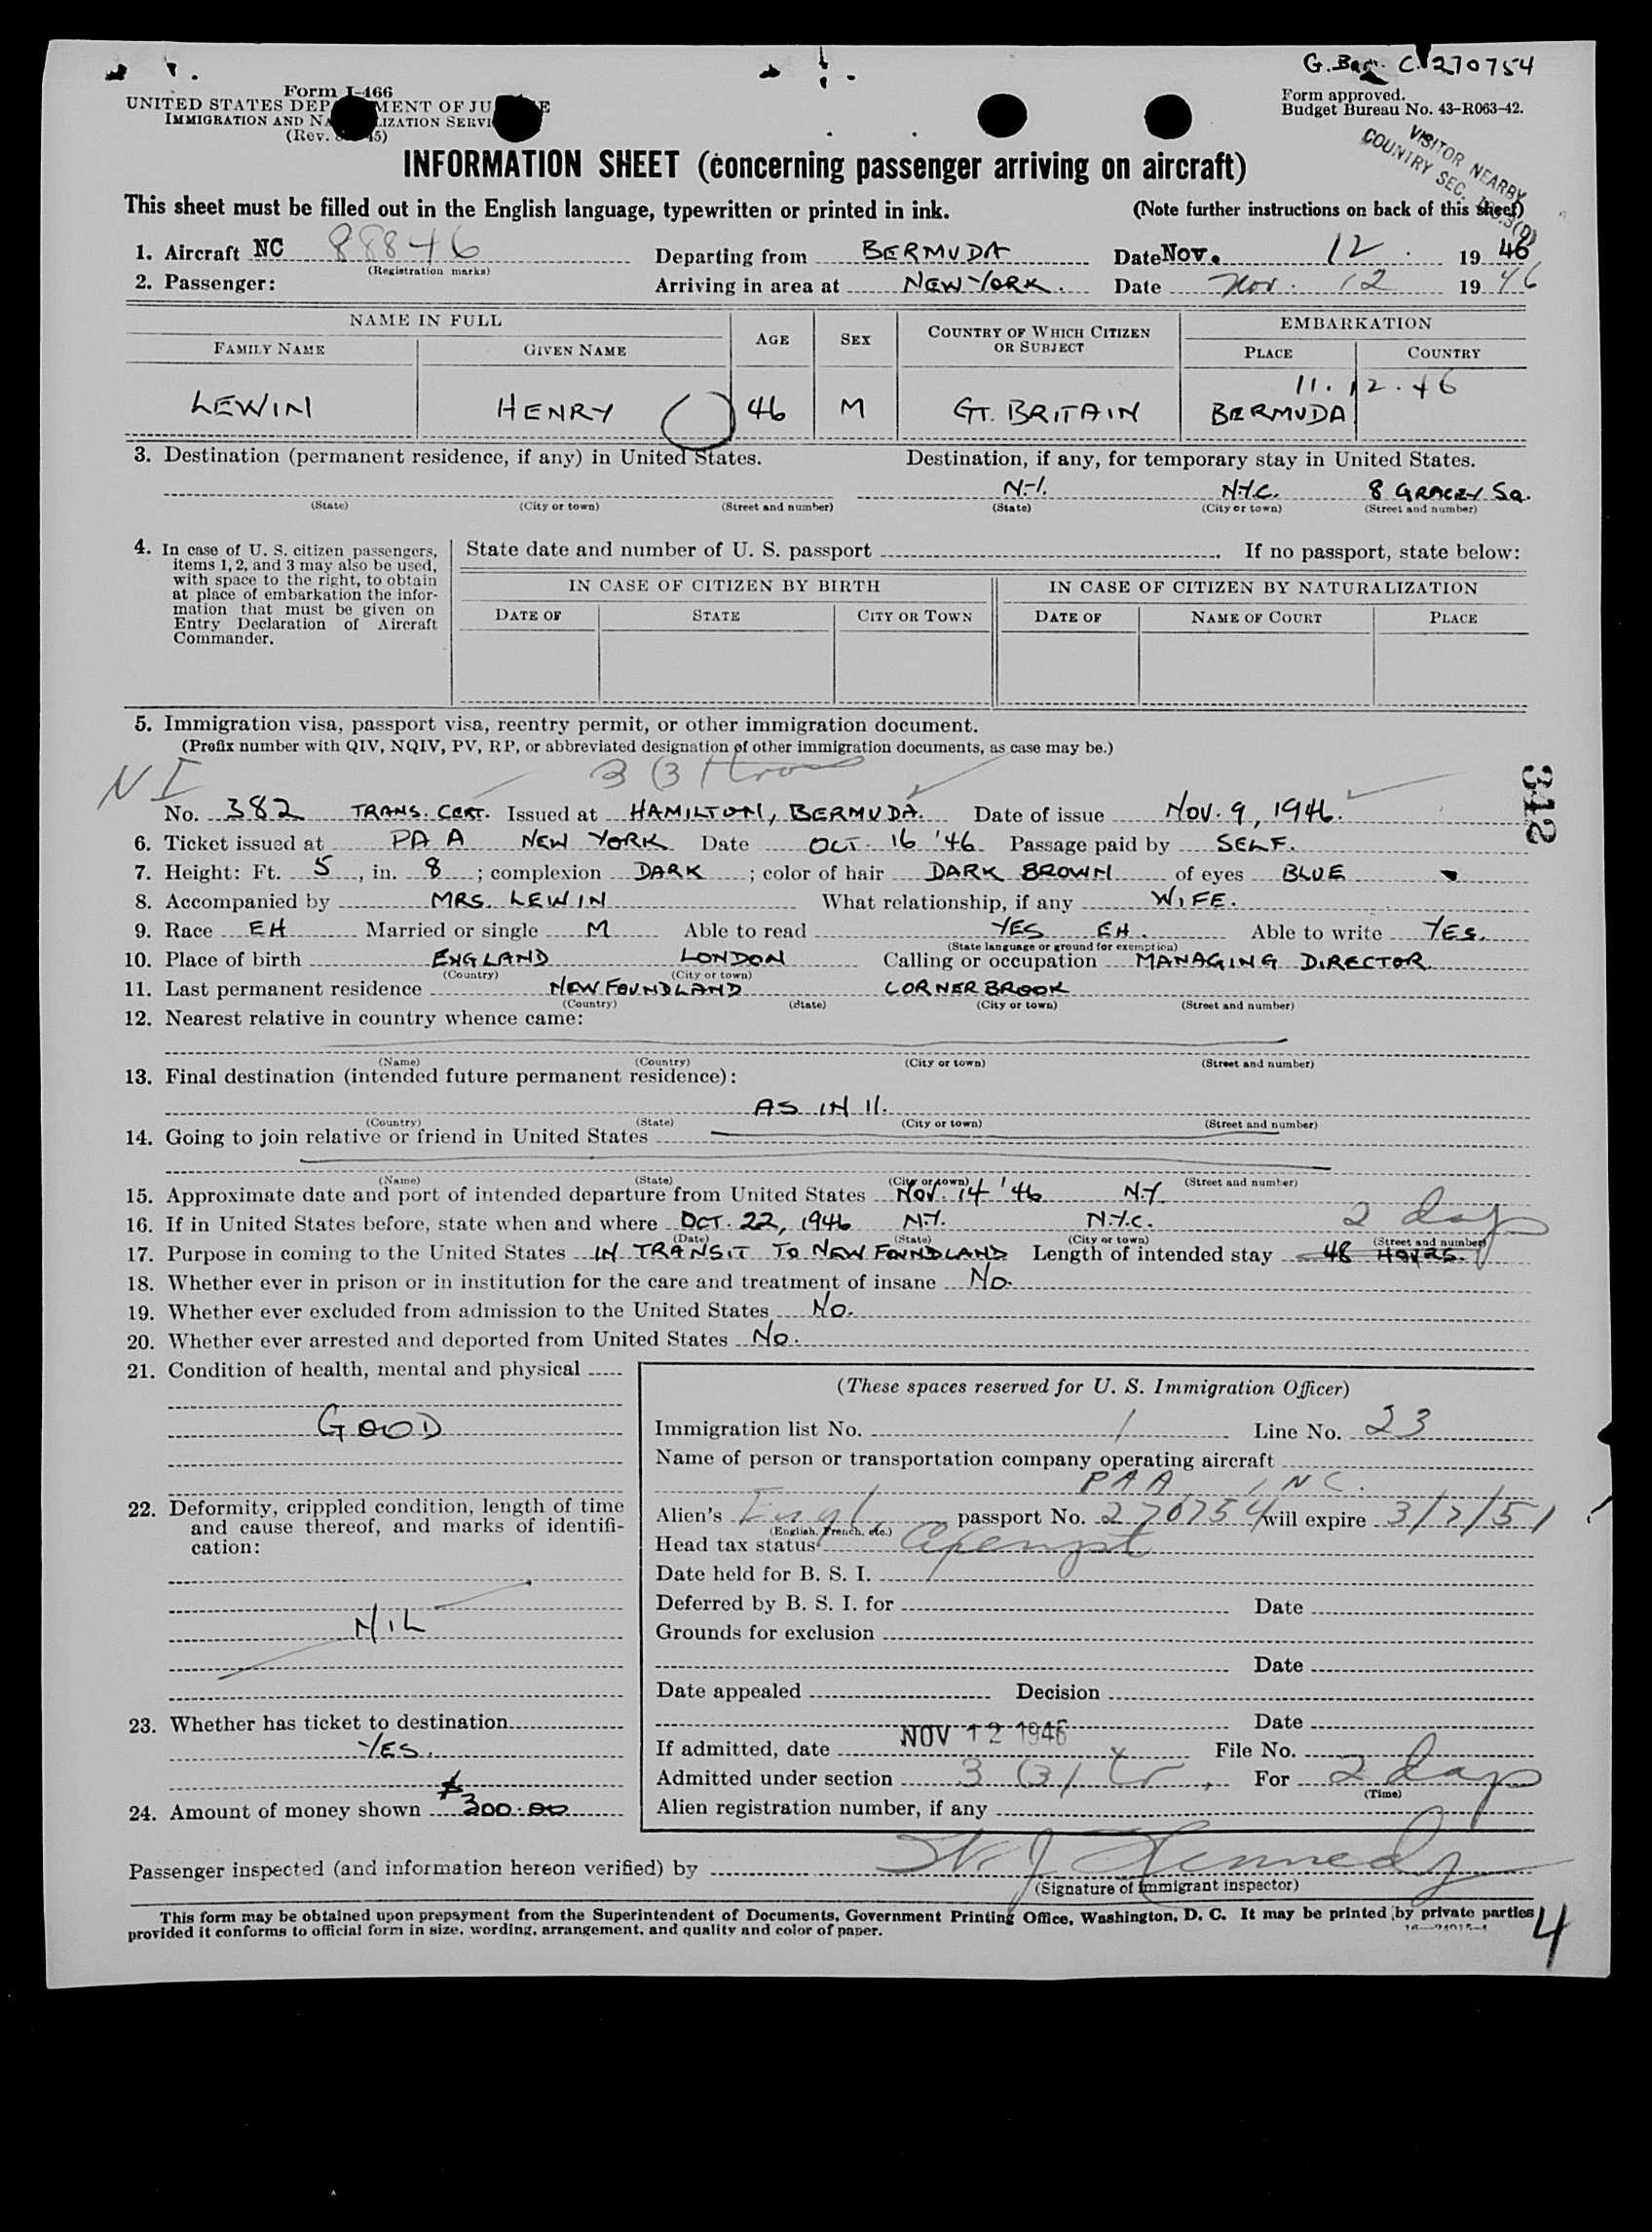 G. Ber. C. 270754
Form I-466
UNITED STATES DEP MENT OF JU E
IMMIGRATION AND NA LIZATION SERVI
(Rev. 45)
Form approved.
Budget Bureau No. 43-R063-42.
VISITOR NEARBY
COUNTRY SEC.
INFORMATION SHEET (concerning passenger arriving on aircraft)
This sheet must be filled out in the English language, typewritten or printed in ink. (Note further instructions on back of this sheet)
1. Aircraft NC 88846 Departing from BERMUDA Date Nov. 12. 1946
(Registration marks)
2. Passenger: Arriving in area at NEW YORK. Date Nov. 12 1946
NAME IN FULL AGE SEX COUNTRY OF WHICH CITIZEN OR SUBJECT EMBARKATION
FAMILY NAME GIVEN NAME PLACE COUNTRY
11.12.46
LEWIN HENRY 46 M GT. BRITAIN BERMUDA
3. Destination (permanent residence, if any) in United States. Destination, if any, for temporary stay in United States.
N.Y. N.Y.C. 8 GRACEY SQ.
(State) (City or town) (Street and number) (State) (City or town) (Street and number)
4. In case of U. S. citizen passengers, items 1, 2, and 3 may also be used, with space to the right, to obtain at place of embarkation the information that must be given on Entry Declaration of Aircraft Commander.
State date and number of U. S. passport If no passport, state below:
IN CASE OF CITIZEN BY BIRTH IN CASE OF CITIZEN BY NATURALIZATION
DATE OF STATE CITY OR TOWN DATE OF NAME OF COURT PLACE
5. Immigration visa, passport visa, reentry permit, or other immigration document.
(Prefix number with QIV, NQIV, PV, RP, or abbreviated designation of other immigration documents, as case may be.)
NI 3 (3)
342
No. 382 TRANS. CERT. Issued at HAMILTON, BERMUDA. Date of issue NOV. 9, 1946.
6. Ticket issued at PAA NEW YORK Date OCT. 16 '46 Passage paid by SELF.
7. Height: Ft. 5, in. 8; complexion DARK; color of hair DARK BROWN of eyes BLUE
8. Accompanied by MRS. LEWIN What relationship, if any WIFE.
9. Race EH Married or single M Able to read YES EH. Able to write YES.
(State language or ground for exemption)
10. Place of birth ENGLAND LONDON Calling or occupation MANAGING DIRECTOR.
(Country) (City or town)
11. Last permanent residence NEWFOUNDLAND CORNER BROOK
(Country) (State) (City or town) (Street and number)
12. Nearest relative in country whence came:
(Name) (Country) (City or town) (Street and number)
13. Final destination (intended future permanent residence):
AS IN 11.
(Country) (State) (City or town) (Street and number)
14. Going to join relative or friend in United States
(Name) (State) (City or town) (Street and number)
15. Approximate date and port of intended departure from United States NOV. 14 '46 N.Y.
16. If in United States before, state when and where OCT. 22, 1946 N.Y. N.Y.C. 2 days
(Date) (State) (City or town) (Street and number)
17. Purpose in coming to the United States IN TRANSIT TO NEWFOUNDLAND Length of intended stay 48 HOURS.
18. Whether ever in prison or in institution for the care and treatment of insane No.
19. Whether ever excluded from admission to the United States No.
20. Whether ever arrested and deported from United States No.
21. Condition of health, mental and physical
GOOD
22. Deformity, crippled condition, length of time and cause thereof, and marks of identification:
NIL
23. Whether has ticket to destination
YES.
24. Amount of money shown $300.00
(These spaces reserved for U. S. Immigration Officer)
Immigration list No. 1 Line No. 23
Name of person or transportation company operating aircraft
PAA INC.
Alien's Engl passport No. 270754 will expire 3/7/51
(English, French, etc.)
Head tax status Exempt
Date held for B. S. I.
Deferred by B. S. I. for Date
Grounds for exclusion
Date
Date appealed Decision
Date
If admitted, date NOV 12 1946 File No.
Admitted under section 3 (3) tr. For 2 days
(Time)
Alien registration number, if any
Passenger inspected (and information hereon verified) by W. J. Kennedy
(Signature of immigrant inspector)
This form may be obtained upon prepayment from the Superintendent of Documents, Government Printing Office, Washington, D. C. It may be printed by private parties
provided it conforms to official form in size, wording, arrangement, and quality and color of paper.
4